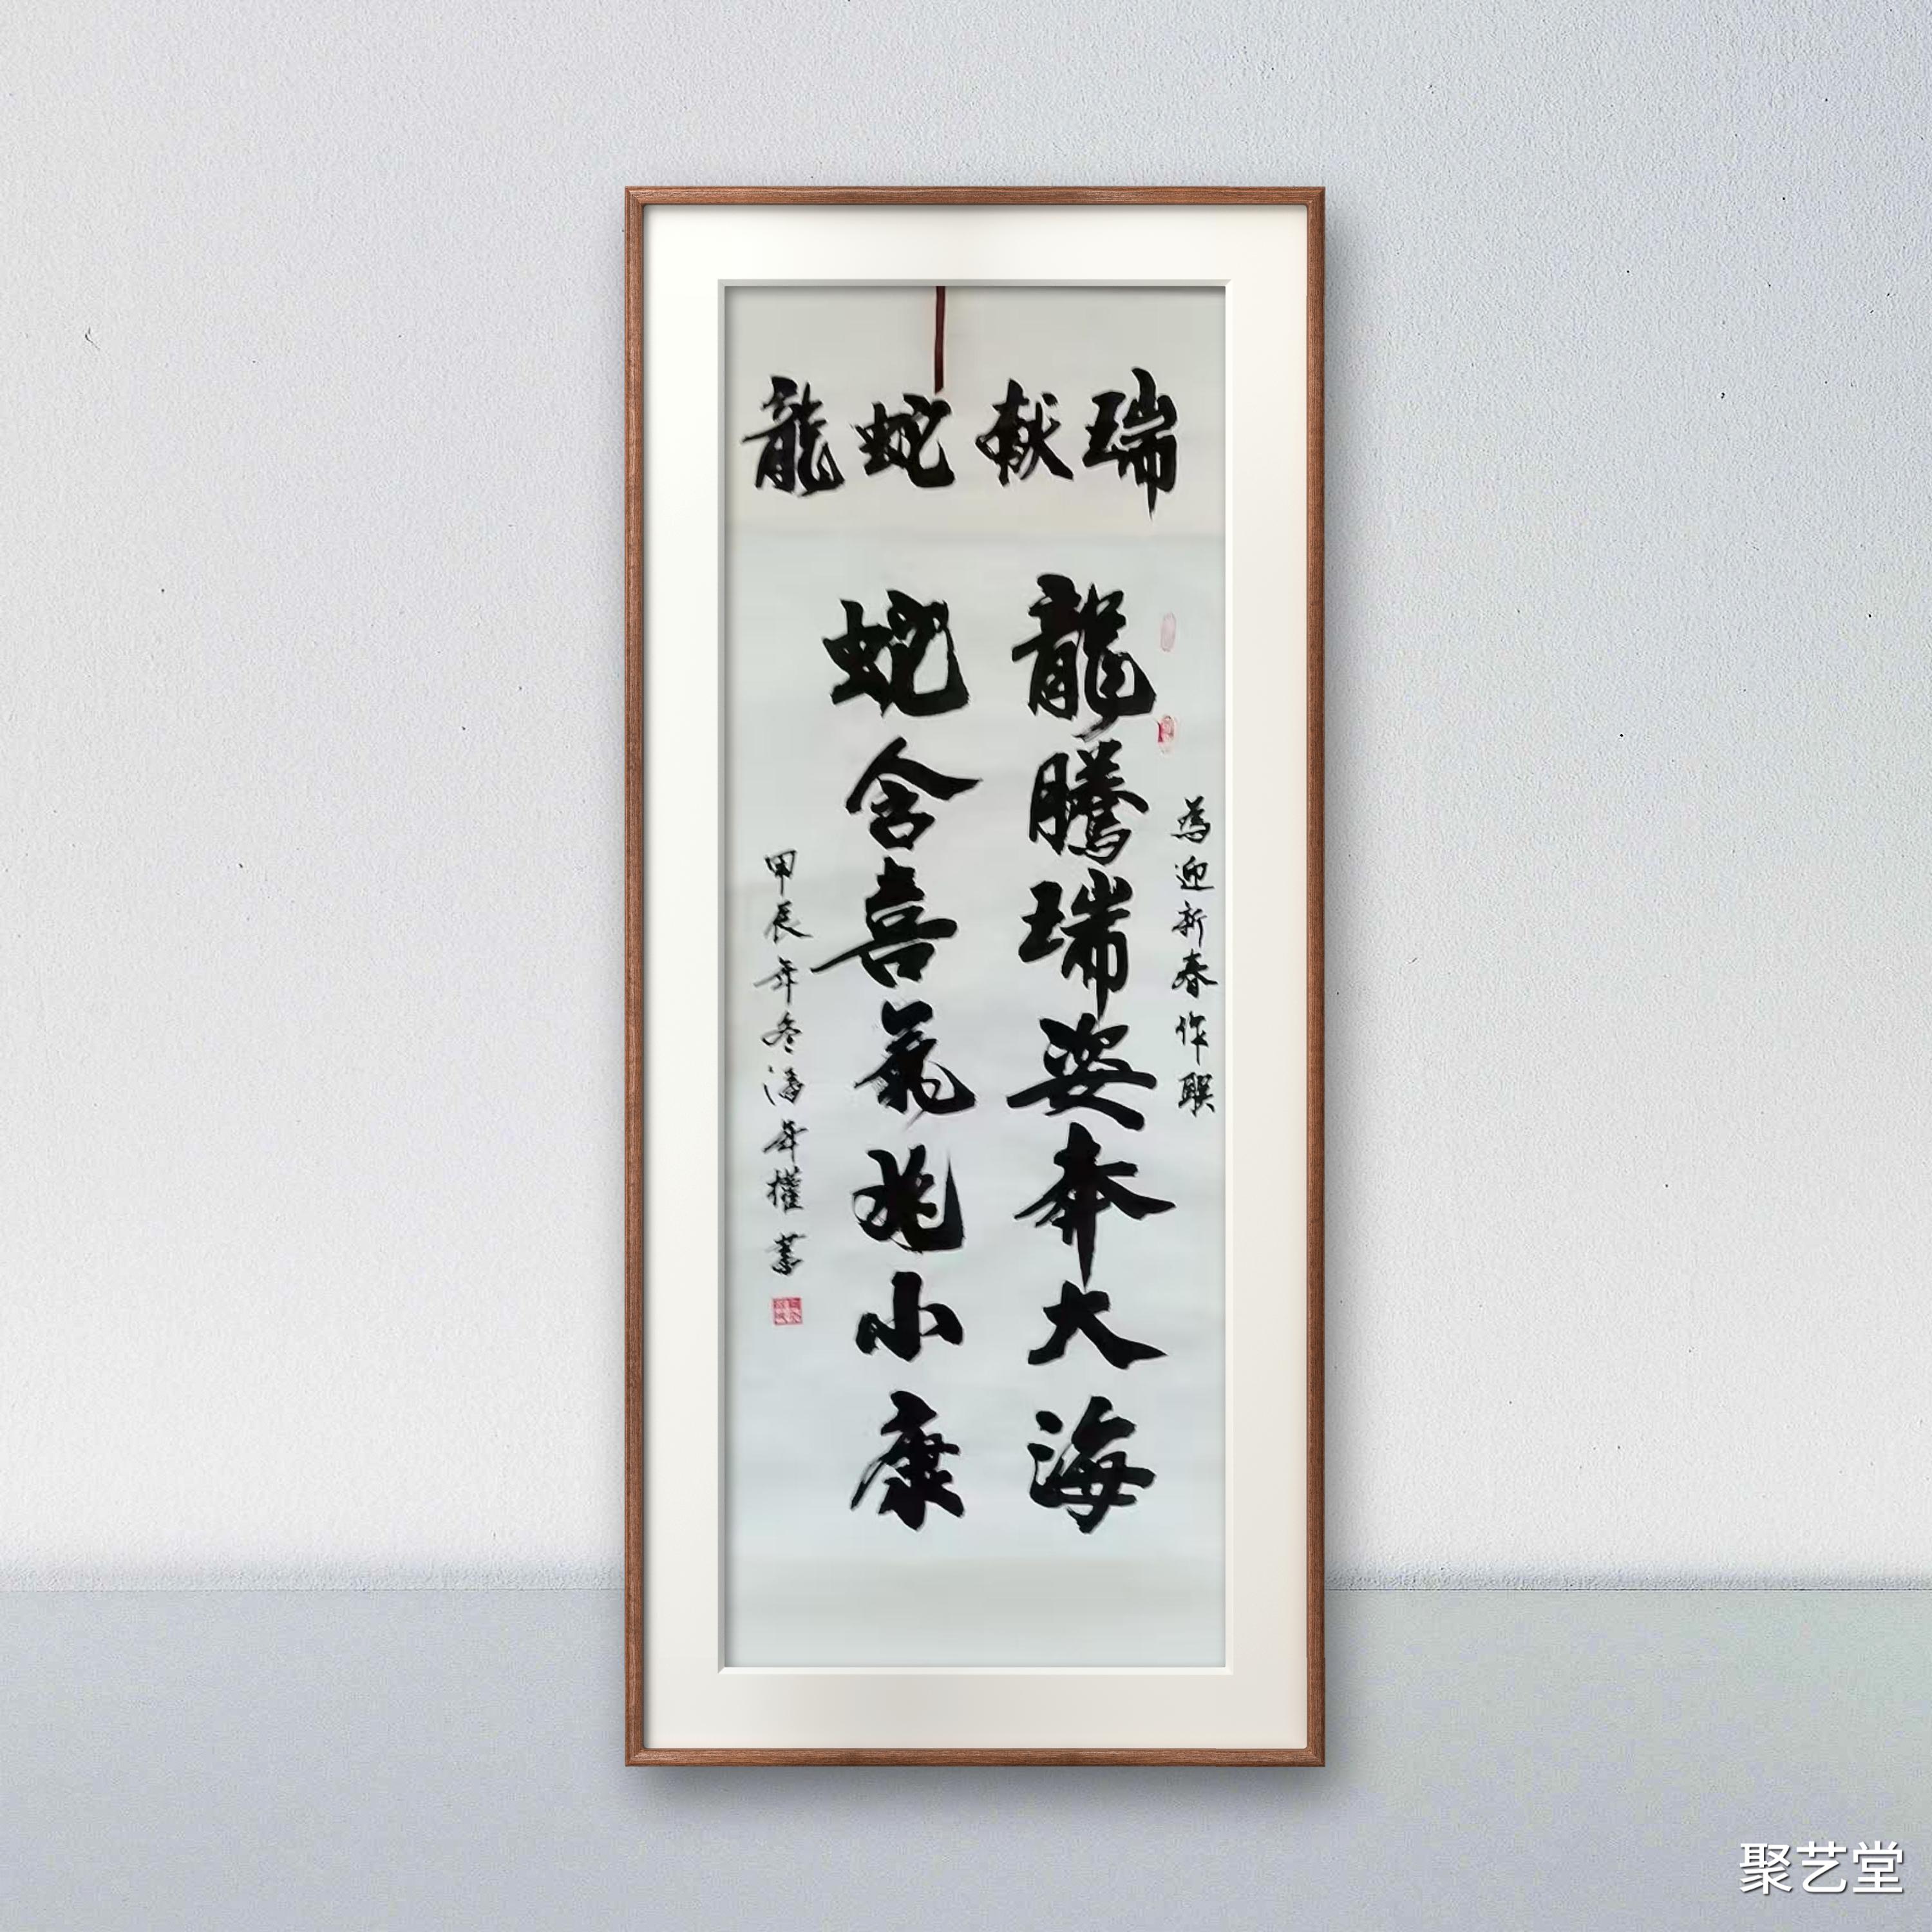 龍蛇献瑞
為迎新春作联
龍騰瑞姿奔大海
蛇含喜氣兆小康
甲辰年冬潘年權書
聚艺堂